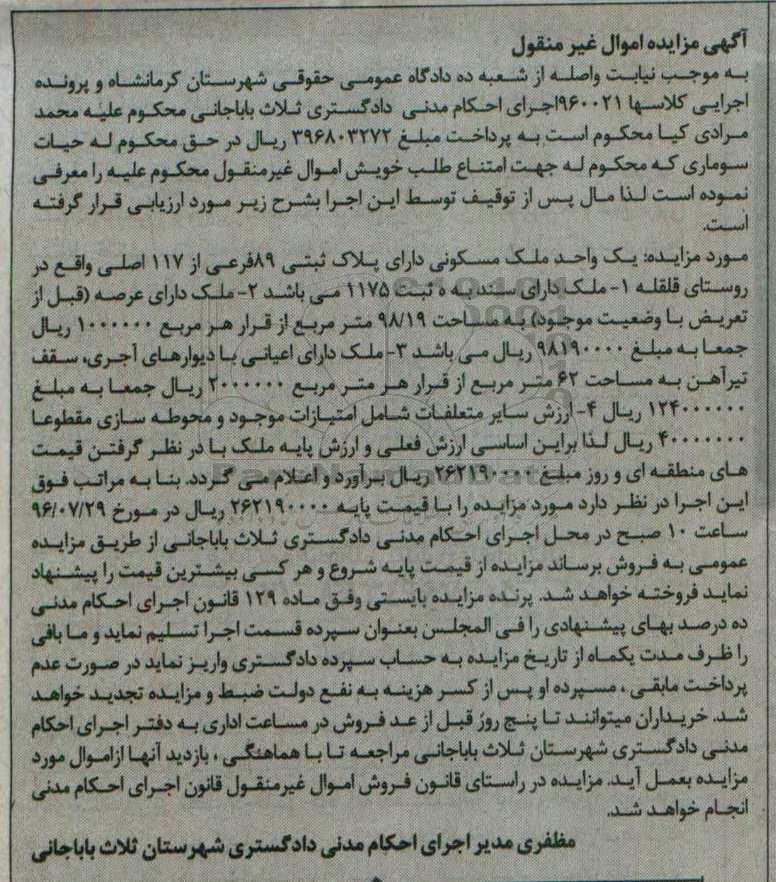 آگهی مزایده اموال غیر منقول
به موجب نیابت واصله از شعبه ده دادگاه عمومی حقوقی شهرستان کرمانشاه و پرونده
اجرایی کلاسها ۹۶۰۰۲۱اجرای احکام مدنی دادگستری ثلاث باباجانی محکوم علیه محمد
مرادی کیا محکوم است به پرداخت مبلغ ۳۹۶۸۰۳۲۷۲ ریال در حق محکوم له حیات
سوماری که محکوم له جهت امتناع طلب خویش اموال غیرمنقول محکوم علیه را معرفی
نموده است لذا مال پس از توقیف توسط این اجرا بشرح زیر مورد ارزیابی قرار گرفته
است.
مورد مزایده: یک واحد ملک مسکونی دارای پلاک ثبتی ۸۹فرعی از ۱۱۷ اصلی واقع در
روستای قلقله ۱- ملک دارای سند به ه ثبت ۱۱۷۵ می باشد ۲- ملک دارای عرصه (قبل از
تعریض با وضعیت موجود) به مساحت ۹۸/۱۹ متر مربع از قرار هر مربع ۱۰۰۰۰۰۰ ریال
جمعا به مبلغ ۹۸۱۹۰۰۰۰ ریال می باشد ۳- ملک دارای اعیانی با دیوارهای آجری، سقف
تیرآهن به مساحت ۶۲ متر مربع از قرار هر متر مربع ۲۰۰۰۰۰۰ ریال جمعا به مبلغ
۱۲۴۰۰۰۰۰۰ ریال ۴- ارزش سایر متعلقات شامل امتیازات موجود و محوطه سازی مقطوعا
۴۰۰۰۰۰۰۰ ریال لذا براین اساسی ارزش فعلی و ارزش پایه ملک با در نظر گرفتن قیمت
های منطقه ای و روز مبلغ ۲۶۲۱۹۰۰۰۰ ریال برآورد و اعلام می گردد. بنا به مراتب فوق
این اجرا در نظر دارد مورد مزایده را با قیمت پایه ۲۶۲۱۹۰۰۰۰ ریال در مورخ ۹۶/۰۷/۲۹
ساعت ۱۰ صبح در محل اجرای احکام مدنی دادگستری ثلاث باباجانی از طریق مزایده
عمومی به فروش برساند مزایده از قیمت پایه شروع و هر کسی بیشترین قیمت را پیشنهاد
نماید فروخته خواهد شد. پرنده مزایده بایستی وفق ماده ۱۲۹ قانون اجرای احکام مدنی
ده درصد بهای پیشنهادی را فی المجلس بعنوان سپرده قسمت اجرا تسلیم نماید و ما بافی
را ظرف مدت یکماه از تاریخ مزایده به حساب سپرده دادگستری واریز نماید در صورت عدم
پرداخت مابقی ، مسپرده او پس از کسر هزینه به نفع دولت ضبط و مزایده تجدید خواهد
شد. خریداران میتوانند تا پنج روز قبل از عد فروش در مساعت اداری به دفتر اجرای احکام
مدنی دادگستری شهرستان ثلاث باباجانی مراجعه تا با هماهنگی ، بازدید آنها ازاموال مورد
مزایده بعمل آید. مزایده در راستای قانون فروش اموال غیرمنقول قانون اجرای احکام مدنی
انجام خواهد شد.
مظفری مدیر اجرای احکام مدنی دادگستری شهرستان ثلاث باباجانی